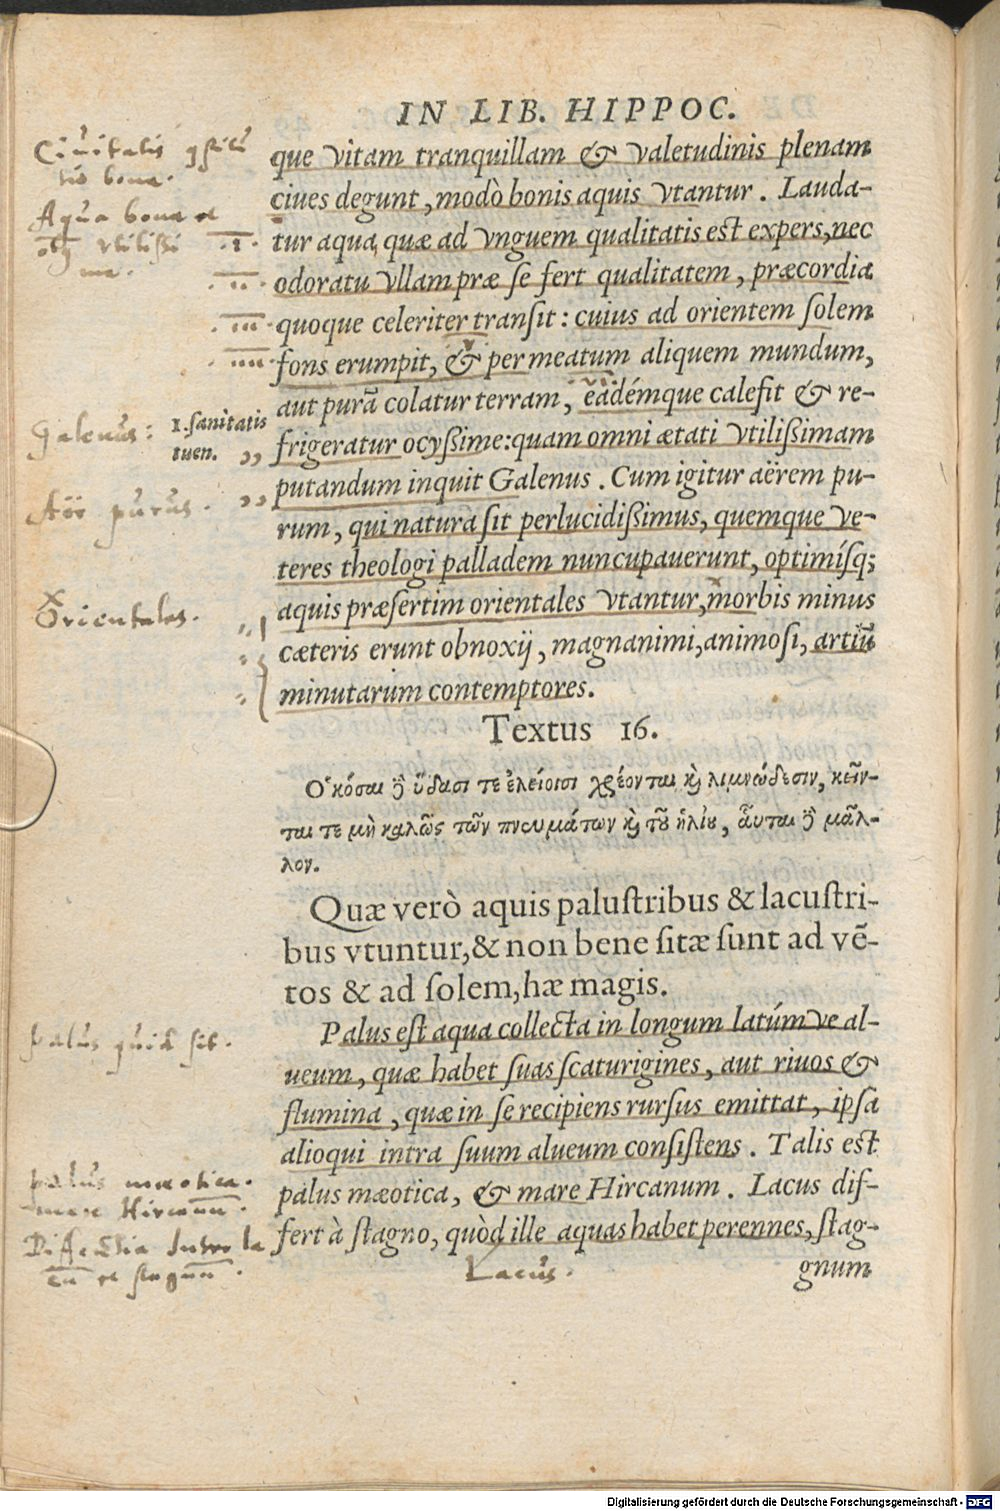 IN LIB. HIPPOC.
que vitam tranquillam & valetudinis plenam
ciues degunt, modò bonis aquis vtantur. Lauda-
tur aqua quæ ad vnguem qualitatis est expers, nec
odoratu vllam præ se fert qualitatem, præcordia
quoque celeriter transit: cuius ad orientem solem
fons erumpit, & per meatum aliquem mundum,
aut purā colatur terram, eadémque calefit & re-
frigeratur ocyßime: quam omni ætati vtilißimam
putandum inquit Galenus. Cum igitur aërem pu-
rum, qui natura sit perlucidißimus, quemque ve-
teres theologi palladem nuncupauerunt, optimísq;
aquis præsertim orientales vtantur, morbis minus
cæteris erunt obnoxij, magnanimi, animosi, artiū
minutarum contemptores.
Textus 16.
Ὁκόσαι δὲ ὕδασι τε ἑλείοισι χρέονται καὶ λιμνώδεσιν, κεῖν-
ται τε μὴ καλῶς τῶν πνευμάτων καὶ τοῦ ἡλίου, αὗται δὲ μᾶλ-
λον.
Quæ verò aquis palustribus & lacustri-
bus vtuntur, & non bene sitæ sunt ad vē-
tos & ad solem, hæ magis.
Palus est aqua collecta in longum latúmve al-
ueum, quæ habet suas scaturigines, aut riuos &
flumina, quæ in se recipiens rursus emittat, ipsa
alioqui intra suum alueum consistens. Talis est
palus mæotica, & mare Hircanum. Lacus dif-
fert à stagno, quòd ille aquas habet perennes, stag-
gnum
Ciuitatis
bona.
Aqua bona
.I.
.II.
.III.
.IIII.
Galenus:
1. sanitatis
tuen.
Aër purus.
Orientales.
palus quid sit.
palus mæotica.
mare Hircanum.
Lacus.
Digitalisierung gefördert durch die Deutsche Forschungsgemeinschaft - DFG